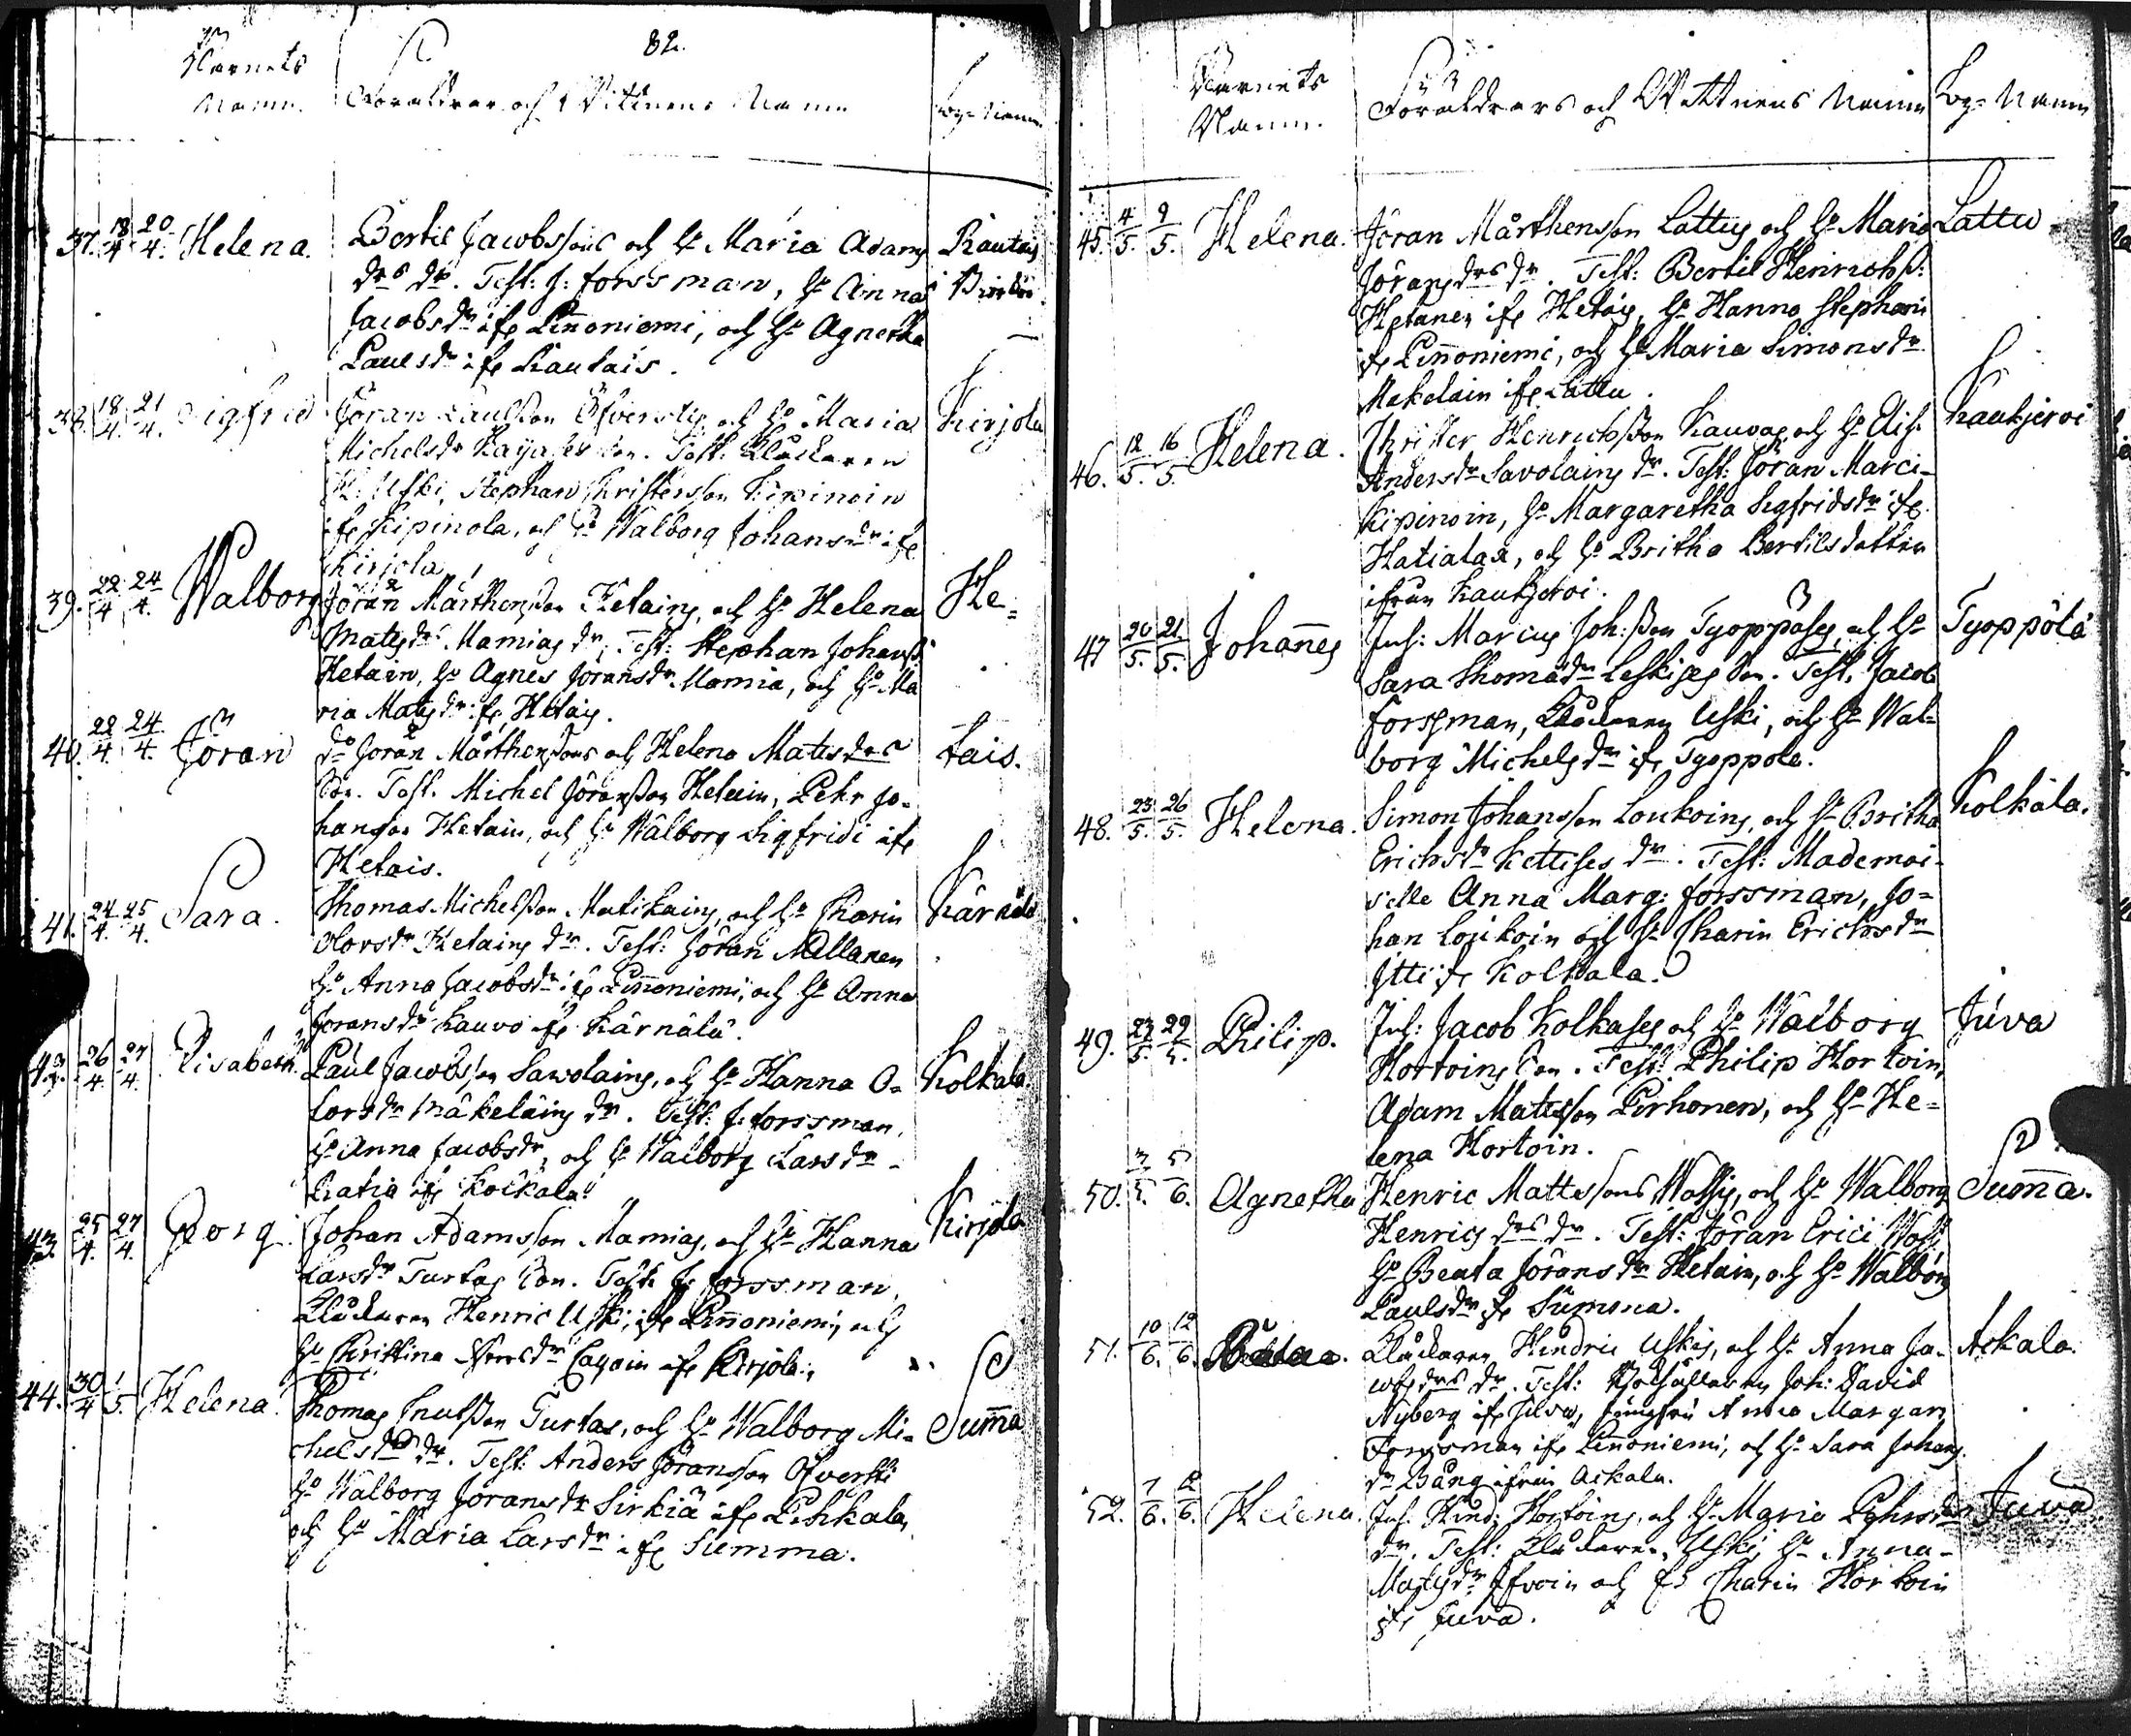 82.
Barnets
Namn. Föräldrar och Wittnens Namn By-Namn
37. 18/4 20/4. Helena. Bertil Jacobssons och h: Maria Adams Rautas
drs dr. Test: J: Forssman, h: Anna
Jacobsdr ifr Linnoniemi, och h: Agnetha
Paulsdr ifr Rautais.
38. 18/4. 21/4. Sigfrid Jöran Paulsson Öfverstis och h: Maria Kirjola
Michelsdr Son. Test: Klåckaren
H: Uski, Stephan Christersson Kipinoin
ifr Kipinola, och h: Walborg Johansdr ifr
Kirjola.
39. 22/4 24/4. Walborg Jöran Mårthensson Hetains, och h: Helena He=
Matsdrs Mamias dr, Test: Stephan Johanss:
Hetain, h: Agnes Joransdr Mamia, och h: Ma
ria Matsdr ifr Hetais.
40. 22/4. 24/4. Jöran do Jöran Mårthenssons och Helena Matsdrs tais.
Son. Test. Michel Jöransson Hetain, Pehr Jo-
hansson Hetain, och h: Walborg Sigfridi ifr
Hetais.
41. 24/4. 25/4. Sara. Thomas Michelsson Matikains, och h: Karin Kärnälä
Olovsdr Hetains dr. Test: Jöran Mellanen
h: Anna Jacobsdr ifr Linnoniemi, och h: Anna
Joransdr Kauvo ifr Kärnälä.
26/4. 27/4. Elisabeth. Paul Jacobsson Sawolains, och h: Hanna O- Kolkala.
lovsdr Mäkeläins dr. Test: J: Forssman,
h: Anna Jacobsdr, och h: Walborg Larsdr
Ratia ifr Kolkala.
43. 25/4. 27/4. Georg. Johan Adamsson Mamias, och h: Hanna Kirjola
Larsdr Turtas Son. Test: J: Forssman,
Klåckaren Henric Uski, ifr Linnoniemi, och
h: Christina ifr Kirjola.
44. 30/4 1/5. Helena. Thomas Knutsson Turtas, och h: Walborg Mi- Summa
chelsdrs dr. Test: Anders Jöransson Öfversti
h: Walborg Joransdr Sirkiä ifr Pihkala,
och h: Maria Larsdr ifr Summa.
Barnets
Namn. Föräldrars och Wittnens Namn By-Namn
45. 4/5. 9/5. Helena. Jöran Mårthensson Lattus och h: Maria Lattu
Jöransdrs dr. Test: Bertil Henrichss:
Hetanen ifr Hetais, h: Hanna Stephani
ifr Linnoniemi, och h: Maria Simonsdr
Makelain ifr Lattu.
46. 12/5. 16/5. Helena. Christer Henrichsson Kauvas och h: Elis: Kaukjervi
Andersdr Savolains dr. Test: Jöran Marci
Kipinoin, h: Margaretha Sigfridsdr ifr
Hatialax, och h: Britha Bertilsdotter
ifrån Kaukjervi.
47 20/5. 21/5. Johannes Inh: Marcus Joh:sson Tyoppöses, och h: Tyoppölä
Sara Thomadr Leskises Son. Test. Jacob
Forssman, Klåckaren Uski, och h: Wal-
borg Michelsdr ifr Tyoppölä.
48. 23/5. 26/5. Helena. Simon Johansson Loukoins, och h: Britha Kolkala.
Erichsdr Kettises dr. Test: Mademoi-
selle Anna Marg: Forssman, Jo=
han Loukoin och h: Charin Erichsdr
Itti ifr Kolkala.
49. 23/5. 29/5. Philip. Inh: Jacob Kolkases och h: Walborg Juva
Hortoins Son. Test: Philip Hortoin,
Adam Matsson Pirhonen, och h: He=
lena Hortoin.
50. 5/6. Agnetha Henric Mattssons Wossis, och h: Walborg Summa.
Henrics drs dr. Test: Jöran Erici Wossi
h: Beata Jöransdr Hetain, och h: Walborg
Paulsdr ifr Summa.
51. 10/6. 12/6. Beata. Klåckaren Hindric Uskis, och h: Anna Ja- Askala.
cobsdrs dr. Test: Joh: David
Nyberg ifr Silva, Jungfru Anna Margar:
Forssman ifr Linnoniemi, och h: Sara Johans
dr Bång ifrån Askala.
52. 7/6. 12/6. Helena. Inh. Hind: Hortoins, och h: Maria Pehrsdrs Juva
dr. Test: Klåckaren Uski, h: Anna
Matsdr och h: Charin Hortoin
ifr Juva.